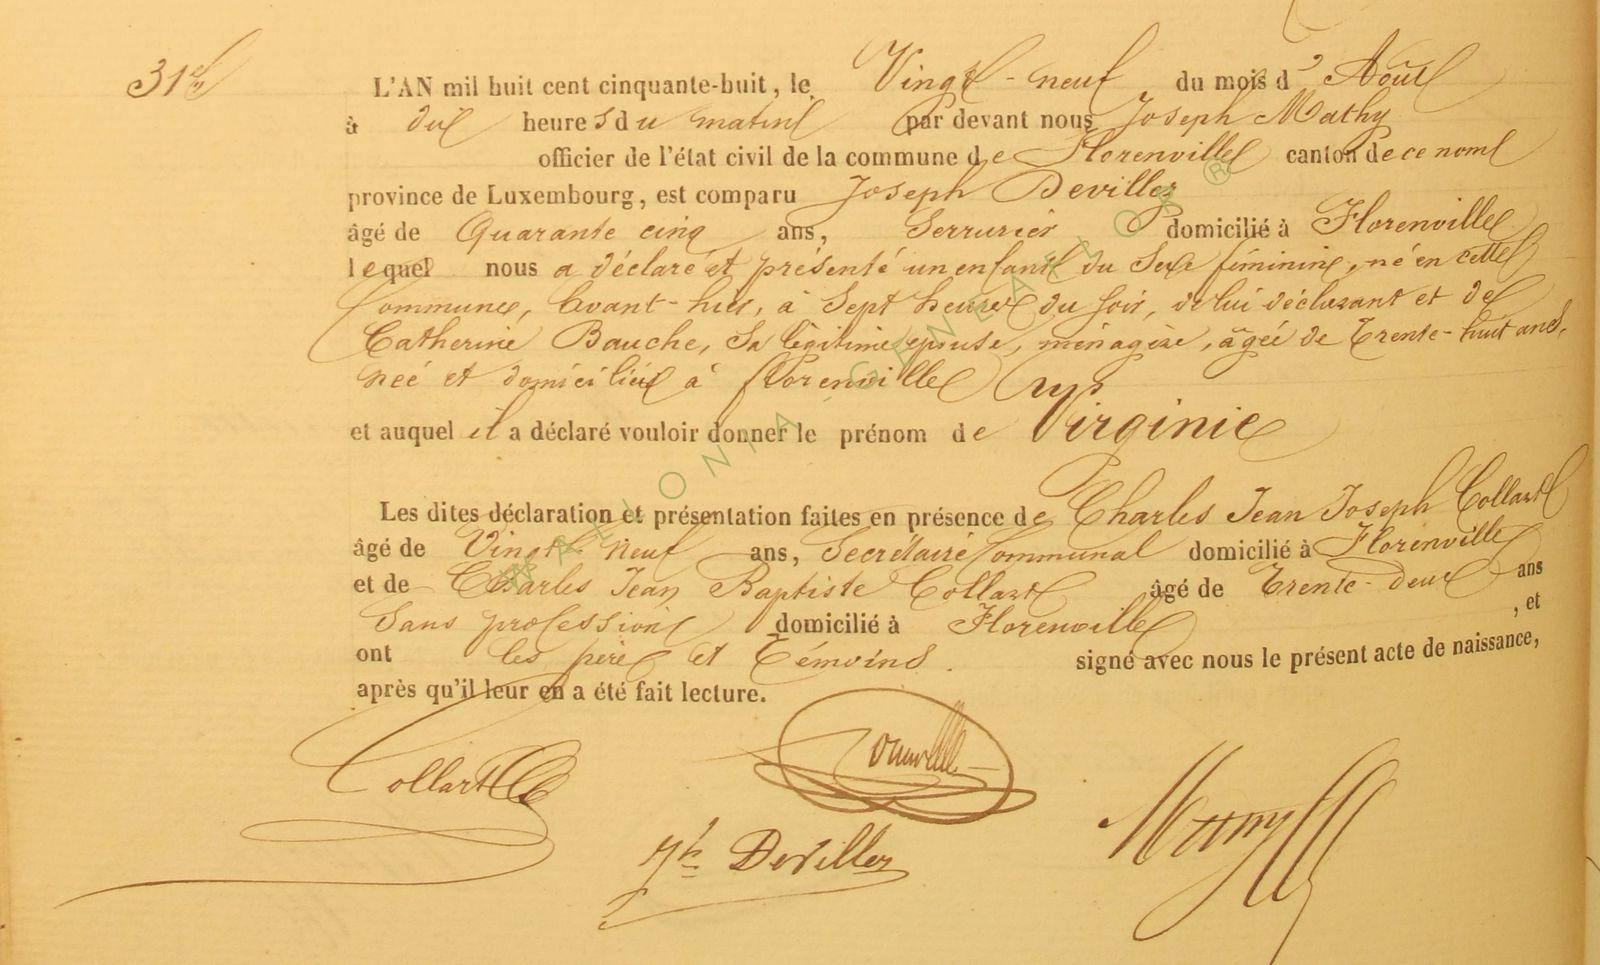 31e
L'AN mil huit cent cinquante-huit, le Vingt-neuf du mois d' Août
à dix heures du matin par devant nous Joseph Mathy
officier de l'état civil de la commune de Florenville canton de ce nom
province de Luxembourg, est comparu Joseph Devillez
âgé de Quarante cinq ans, Serrurier domicilié à Florenville
lequel nous a déclaré et présenté un enfant du Sexe féminin, né en cette
Commune, avant-hier, à Sept heures du soir, de lui déclarant et de
Catherine Bauche, Sa légitime epouse, ménagère, âgée de Trente-huit ans,
neé et domiciliée à Florenville
et auquel il a déclaré vouloir donner le prénom de Virginie
Les dites déclaration et présentation faites en présence de Charles Jean Joseph Collart
âgé de Vingt-neuf ans, Secrétaire Communal domicilié à Florenville
et de Charles Jean Baptiste Collart âgé de Trente-deux ans
Sans profession domicilié à Florenville, et
ont les père et Témoins. signé avec nous le présent acte de naissance,
après qu'il leur en a été fait lecture.
Collart
Jh Devillez
Mathy
WALLONIA - GENEALOR ®